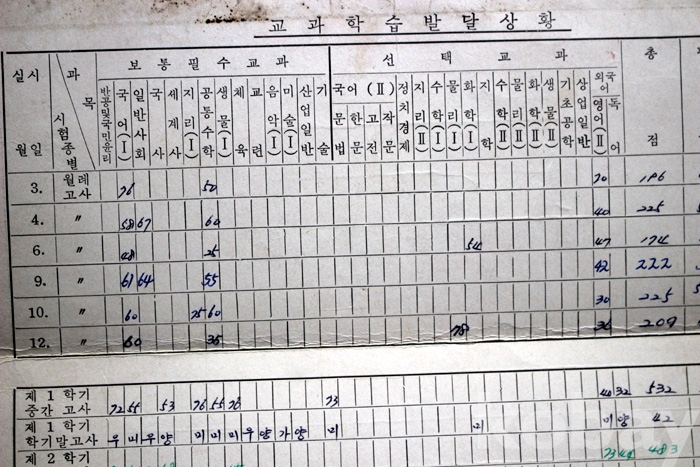 교과학습발달상황
실시 월일 과목 시험종별 보통필수교과 선택교과 총점
반공및국민윤리 국어(Ⅰ) 일반사회 국사 세계사 지리(Ⅰ) 공통수학 생물(Ⅰ) 체육 교련 음악(Ⅰ) 미술(Ⅰ) 산업일반 기술 국어(Ⅱ) 문법 한문 고전 작문 정치경제 지리(Ⅱ) 수학(Ⅰ) 물리(Ⅰ) 화학(Ⅰ) 지학 수학(Ⅱ) 물리(Ⅱ) 화학(Ⅱ) 생물(Ⅱ) 기초공학 상업일반 외국어 영어(Ⅱ) 독어
3. 월례고사 76 50 70 196
4. 〃 58 67 60 40 225
6. 〃 48 25 54 47 174
9. 〃 61 64 55 42 222
10. 〃 60 75 60 30 225
12. 〃 60 35 78 36 209
제1학기 중간고사 72 55 53 76 55 76 73 40 32 532
제1학기 학기말고사 우 미 우 양 미 미 미 우 양 가 양 미 미 미 양 42
제2학기 73 48 483